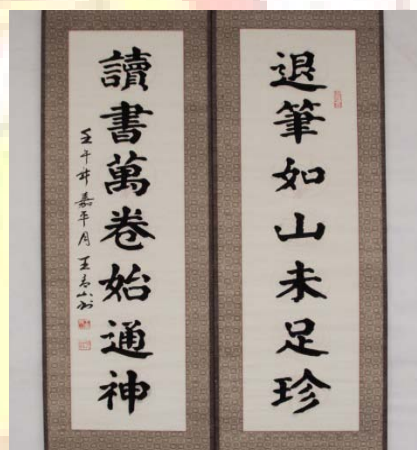 退筆如山未足珍
讀書萬卷始通神
壬午年嘉平月